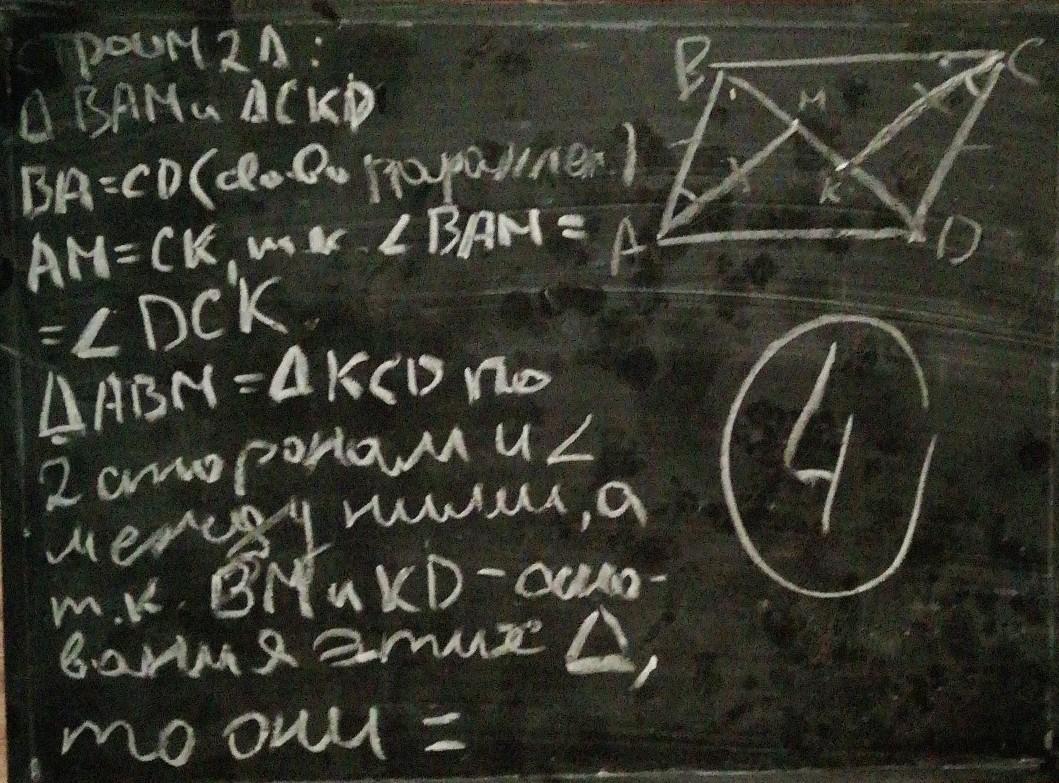 Строим 2Δ:
Δ BAM и ΔCKD
BA=CD(св-во параллел.)
AM=CK, т.к. ∠BAM =
=∠DCK
ΔABM =ΔKCD по
2 сторонам и ∠
между ними, а
т.к. BM и KD - осно-
вания этих Δ,
то они =
B
C
M
K
A
D
4